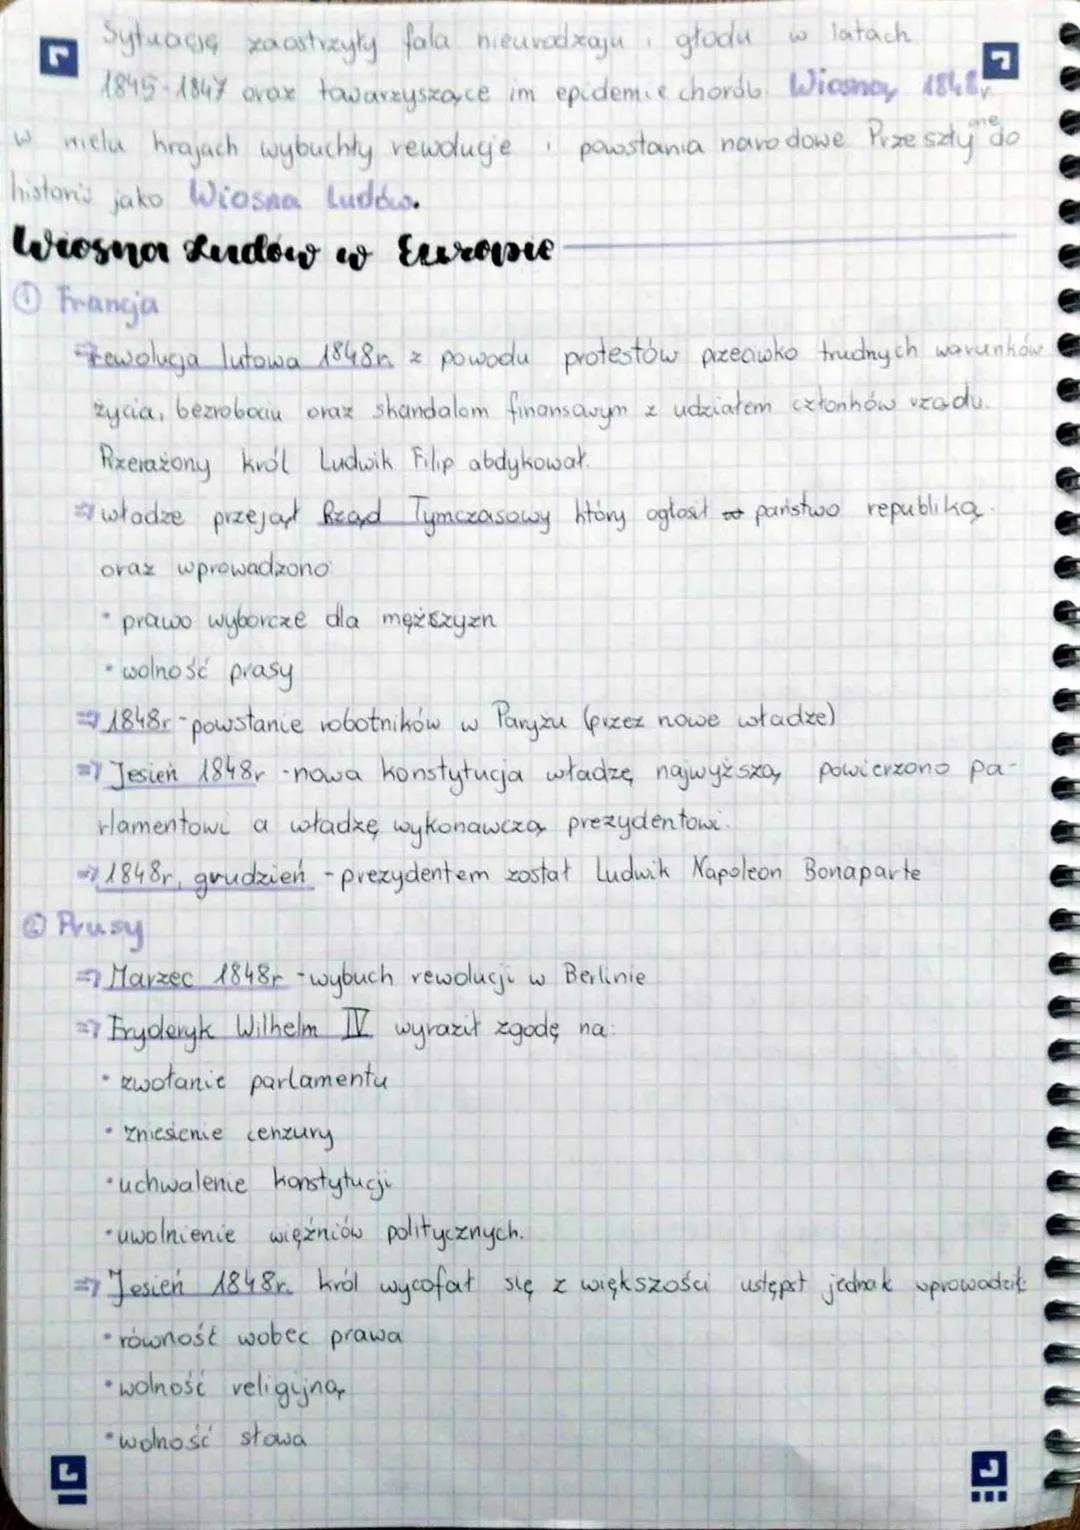 Sytuację zaostrzyły fala nieurodzaju i głodu w latach
1845-1847 oraz towarzyszące im epidemie chorób. Wiosną 1848r
w wielu krajach wybuchły rewolucje i powstania narodowe Przeszły one do
historii jako Wiosna Ludów.
Wiosna Ludów w Europie
① Francja
⇒ rewolucja lutowa 1848r. z powodu protestów przeciwko trudnych warunków
życia, bezrobociu oraz skandalom finansowym z udziałem członków rządu.
Przerażony król Ludwik Filip abdykował.
⇒ władze przejął Rząd Tymczasowy który ogłosił państwo republiką.
oraz wprowadzono:
• prawo wyborcze dla męższyzn
• wolność prasy
⇒ 1848r - powstanie robotników w Paryżu (przez nowe władze)
⇒ Jesień 1848r - nowa konstytucja władzę najwyższą powierzono pa-
rlamentowi a władzę wykonawczą prezydentowi.
⇒ 1848r, grudzień - prezydentem został Ludwik Napoleon Bonaparte
② Prusy
⇒ Marzec 1848r - wybuch rewolucji w Berlinie
⇒ Fryderyk Wilhelm IV wyraził zgodę na:
• zwołanie parlamentu
• zniesienie cenzury
• uchwalenie konstytucji
• uwolnienie więźniów politycznych.
⇒ Jesień 1848r. król wycofał się z większości ustępst jednak wprowadził:
• równość wobec prawa
• wolność religijną
• wolność słowa